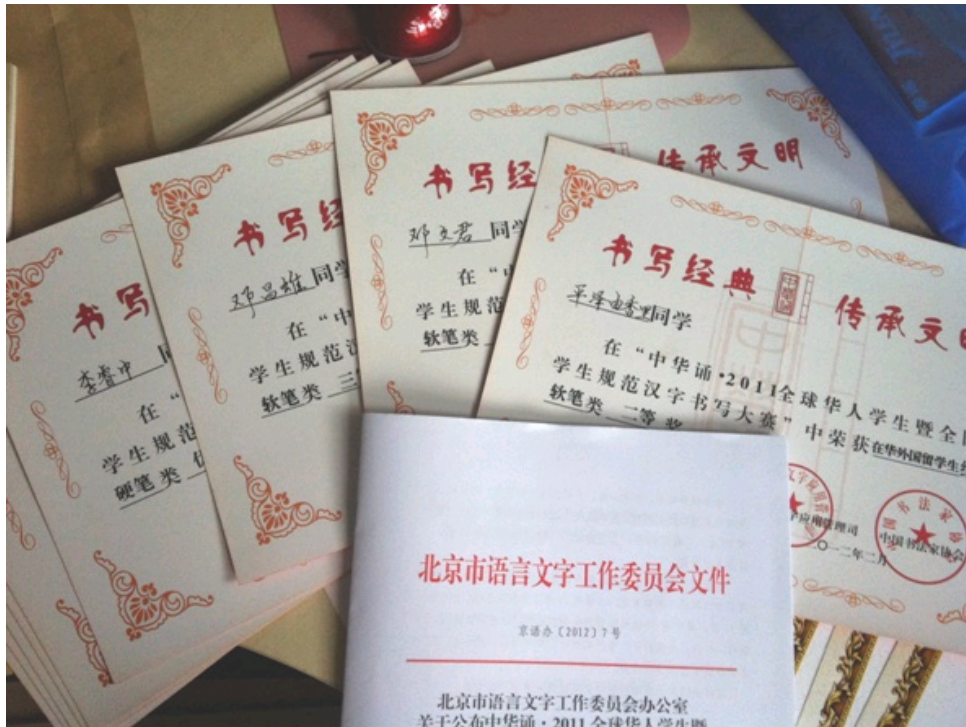 书写
李睿中 同
在“
学生规范
硬笔类
书写经
邓昌雄 同学
在“中
学生规范汉
软笔类 三
书写经 传承文明
邓文君 同学
在“中
学生规范
软笔类
书写经典 中华诵 传承文明
平泽由香里同学
在“中华诵·2011全球华人学生暨全国
学生规范汉字书写大赛”中荣获在华外国留学生组
软笔类 二等奖
字应用管理司 中国书法家协会
二〇一二年二月
北京市语言文字工作委员会文件
京语办〔2012〕7号
北京市语言文字工作委员会办公室
关于公布中华诵·2011全球华人学生暨